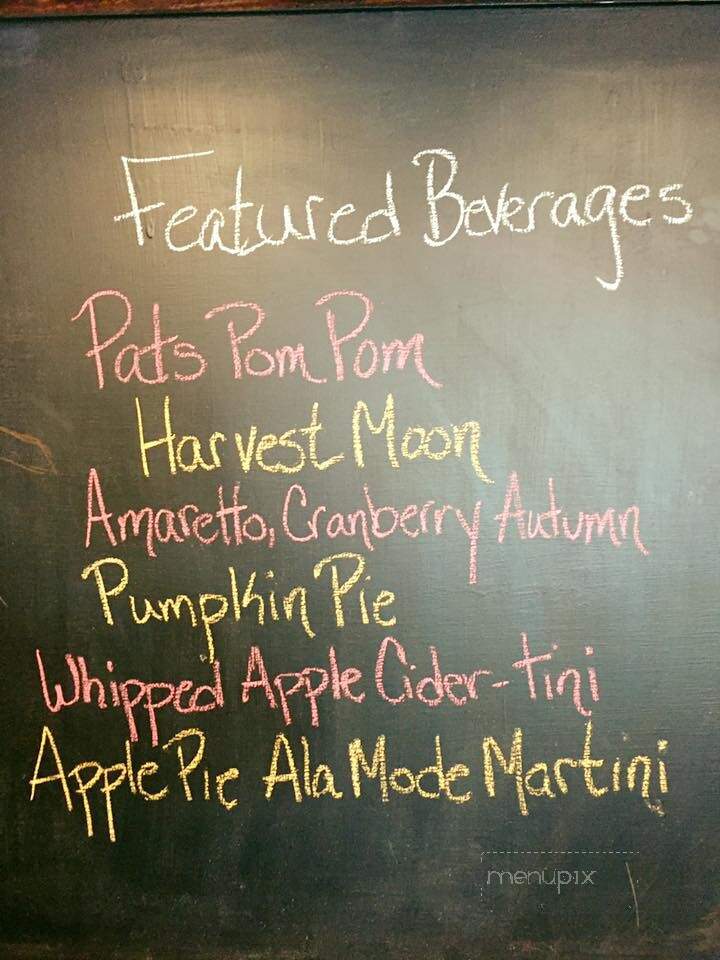 Featured Beverages
Pats Pom Pom
Harvest Moon
Amaretto, Cranberry Autumn
Pumpkin Pie
Whipped Apple Cider-tini
Apple Pie Ala Mode Martini
menupix